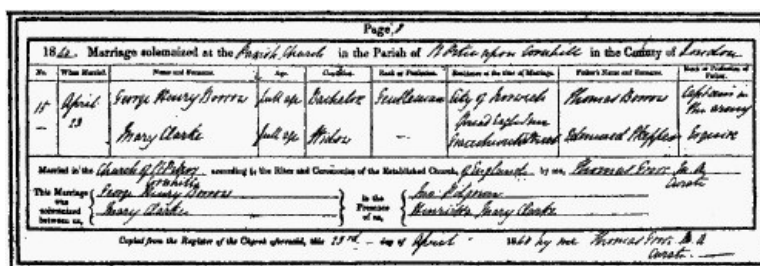 Page
18 . Marriage solemnized at the Parish Church in the Parish of St Peter upon Cornhill in the County of London
No. When Married. Name and Surname. Age. Condition. Rank or Profession. Residence at the time of Marriage. Father's Name and Surname. Rank or Profession of Father.
15 April 23 George Henry Borrow full age Bachelor Gentleman City of Norwich Thomas Borrow Captain in the army
Mary Clarke full age Widow — Edmund Skepper Esquire
Married in the Church of St Peter Cornhill according to the Rites and Ceremonies of the Established Church, of England by me, Thomas M. A. Curate
This Marriage was solemnized between us, George Henry Borrow Mary Clarke In the Presence of us, Henrietta Mary Clarke
Copied from the Register of the Church aforesaid, this 23rd — day of April 18 by me Thomas M. A. Curate